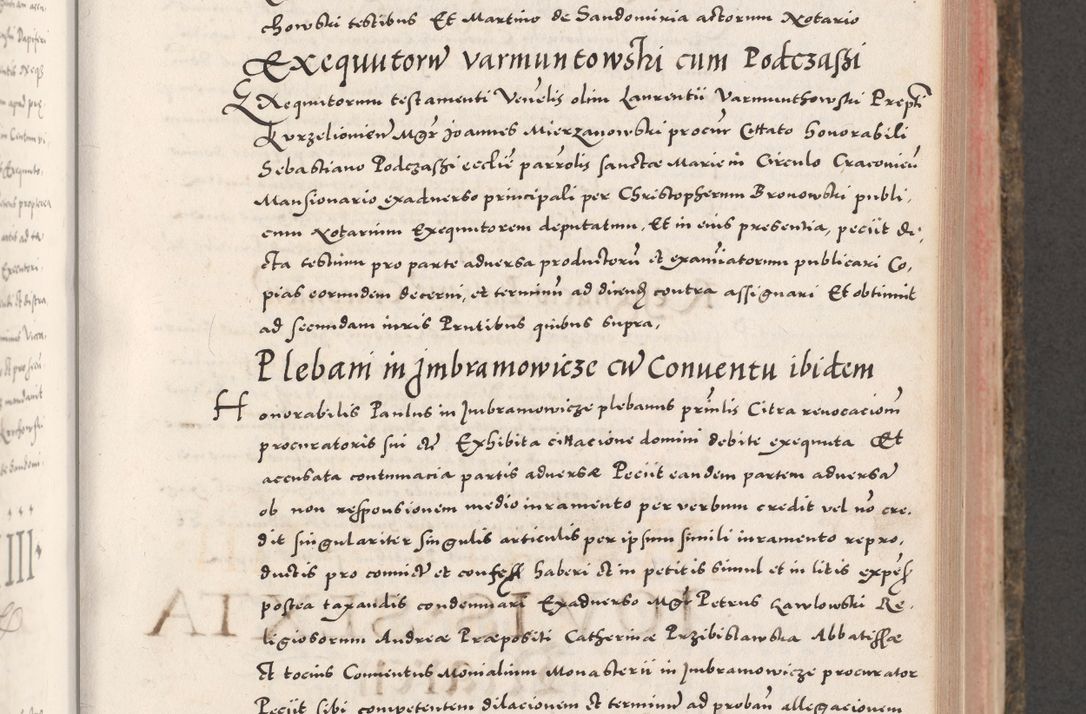 chowski testibus Et Martino de Sandomiria actorum Notario
Exequutorũ Varmuntowski cum Podczaszi
EXequutorum testamenti Venelis olim Laurentii Varmunthowski Prepti
Kurzelionien̄ Mgr̄ Joannes Mierzanowski procur̄ Cittato honorabili
Sebastiano Podczaszi eccliē parrolis sanctæ Marie in Circulo Cracouien̄
Mansionario exaduerso principali per Christopherum Bronowski publi,
cum Notarium Exequutorem deputatum, Et in eius presentia, peciit di,
cta testium pro parte aduersa productorū et exam̄iatorum publicari Co,
pias eorumdem decerni, et terminū ad dicend̄ contra assignari Et obtinuit
ad secundam iuris Prutibus quibus supra,
Plebani in Jmbramowicze cū Conuentu ibidem
Honorabilis Paulus in Jmbramowicze plebanus prn̄lis Citra reuocacionē
procuratoris sui etc̄ Exhibita cittacione domini debite exequuta Et
accusata contumacia partis aduersæ Peciit eandem partem aduersā
ob non responsionem medio iuramento per verbum credit vel nō cre,
dit singulariter singulis articulis per ipsum simili iuramento repro,
ductis pro conuict̄ et confess̄ haberi et in petitis simul et in litis expēs̄
postea taxandis condemnari Exaduerso Mgr̄ Petrus Kawlowski Re,
ligiosorum Andreæ Præpositi Catherinæ Przibislawska Abbatissæ
Et tocius Conuentus Monialium Monasterii in Jmbramowicze procurator
Peciit sibi competentem dilacionem et terminū ad proban̄ allegacionem